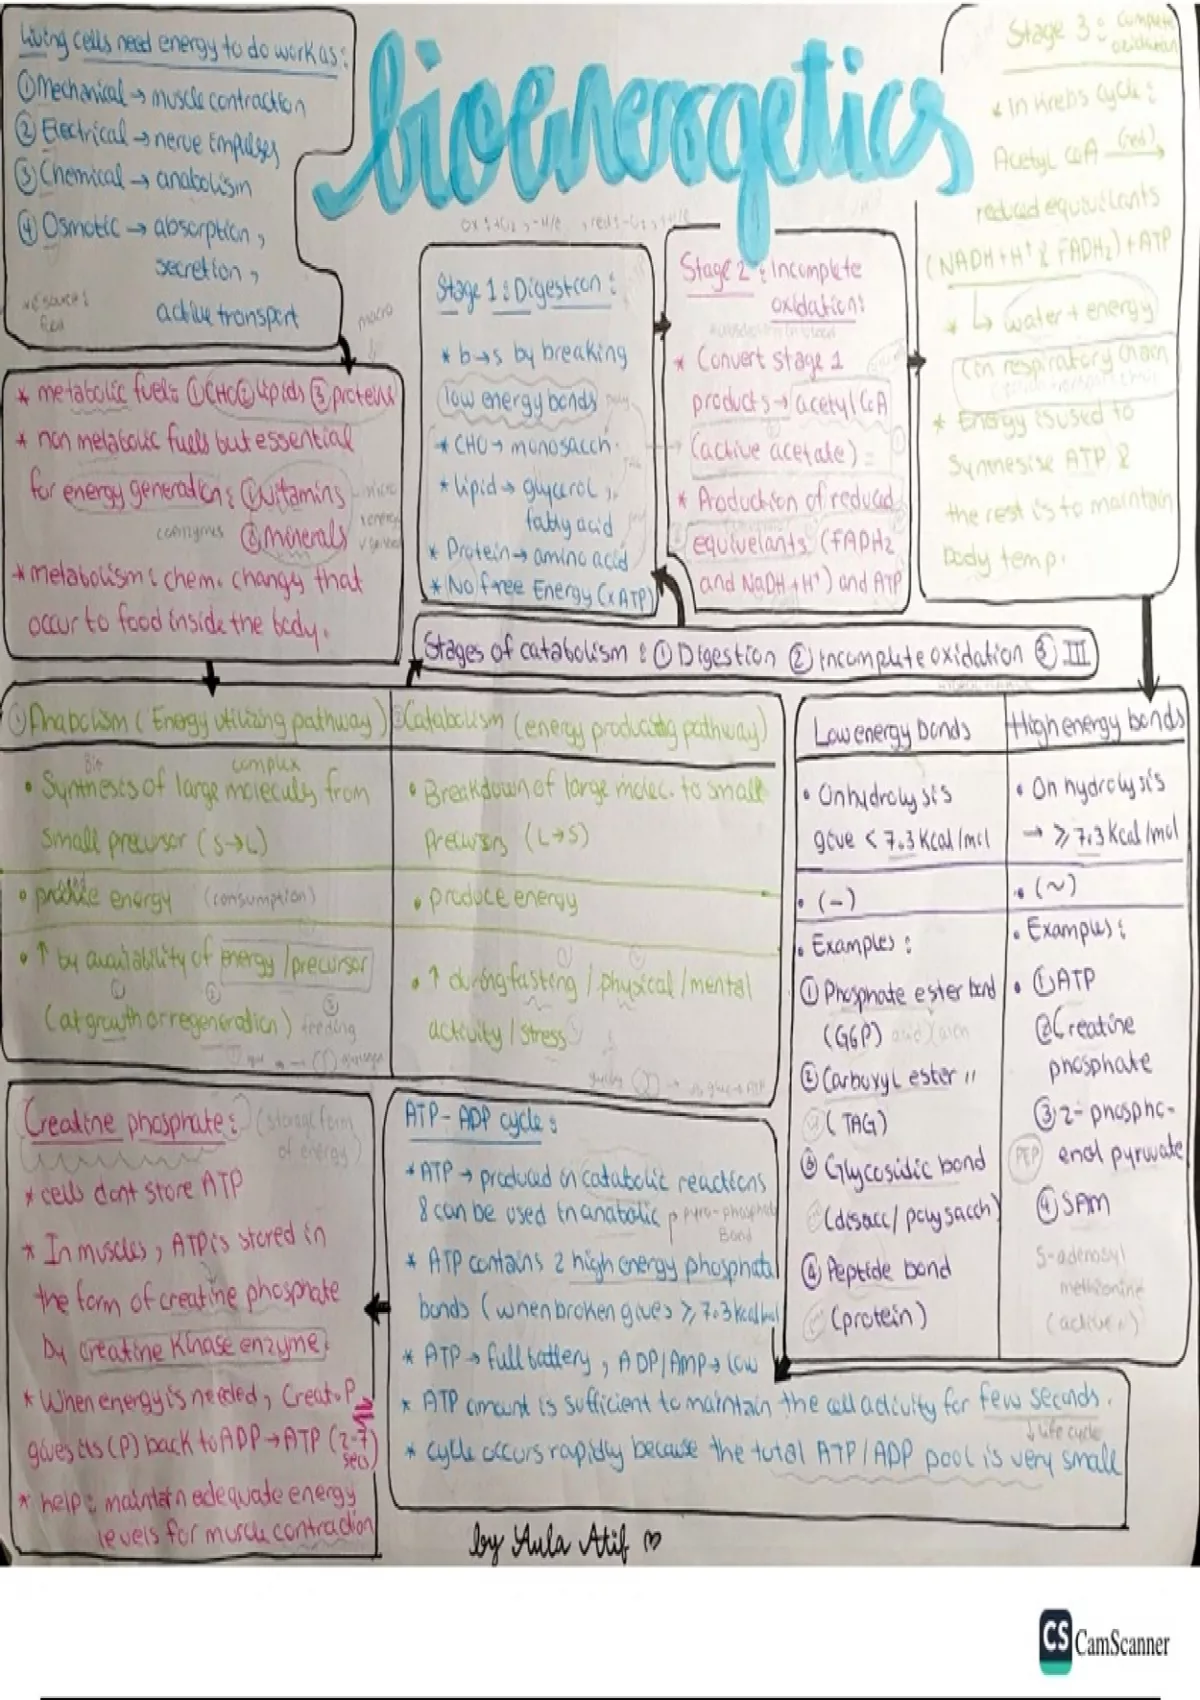 bioenergetics
Living cells need energy to do work as:
① Mechanical → muscle contraction
② Electrical → nerve impulses
③ Chemical → anabolism
④ Osmotic → absorption,
secretion,
active transport
* metabolic fuel: ① CHO ② Lipids ③ proteins
* non metabolic fuels but essential
for energy generation: ① vitamins
coenzymes ② minerals
* metabolism: chem. changes that
occur to food inside the body.
macro
Stage 1: Digestion:
* b→s by breaking
low energy bonds
* CHO → monosacch.
* lipid → glycerol,
fatty acid
* Protein → amino acid
* No free Energy (x ATP)
Stage 2: Incomplete
oxidation:
* Convert stage 1
products → acetyl CoA
(active acetate)
* Production of reduced
equivelants (FADH2
and NaDH + H⁺) and ATP
Stage 3: Complete
oxidation
* In Krebs cycle:
Acetyl CoA (red)→
reduced equivelants
(NADH + H⁺ & FADH₂) + ATP
* ↳ water + energy
(in respiratory chain
* Energy is used to
Synthesise ATP &
the rest is to maintain
body temp.
Stages of catabolism: ① Digestion ② incomplete oxidation ③ III
① Anabolism (Energy utilizing pathway)
Bio complex
• Synthesis of large molecules from
small precursor (S→L)
energy (consumption)
• ↑ by availability of energy / precursor
① ②
(at growth or regeneration) ③ feeding
② Catabolism (energy producing pathway)
• Breakdown of large molec. to small
Precursors (L→S)
• produce energy
• ↑ during fasting / physical / mental
activity / stress
Low energy bonds
• On hydrolysis
give < 7.3 Kcal/mol
• (-)
• Examples:
① Phosphate ester bond
(G6P)
② Carboxyl ester "
(TAG)
③ Glycosidic bond
(disacc/polysacch)
④ Peptide bond
(protein)
High energy bonds
• On hydrolysis
→ ≥ 7.3 Kcal/mol
• (~)
• Examples:
• ① ATP
② Creatine
phosphate
③ 2-phospho-
PEP enol pyruvate
④ SAM
S-adenosyl
methionine
Creatine phosphate: (storage form
of energy)
* cells dont store ATP
* In muscles, ATP is stored in
the form of creatine phosphate
by creatine kinase enzyme.
* When energy is needed, Creat.P
gives its (P) back to ADP → ATP (2-7
secs)
* help: maintain adequate energy
levels for muscle contraction
ATP - ADP cycle:
* ATP → produced in catabolic reactions
& can be used in anabolic
pyro-phosphate
Bond
* ATP contains 2 high energy phosphate
bonds (when broken gives ≥ 7.3 kcal/mol
* ATP → full battery, ADP/AMP → low
* ATP amount is sufficient to maintain the cell activity for few seconds.
↓ life cycle
* cycle occurs rapidly because the total ATP/ADP pool is very small
by Aula Atif ♡
CS CamScanner